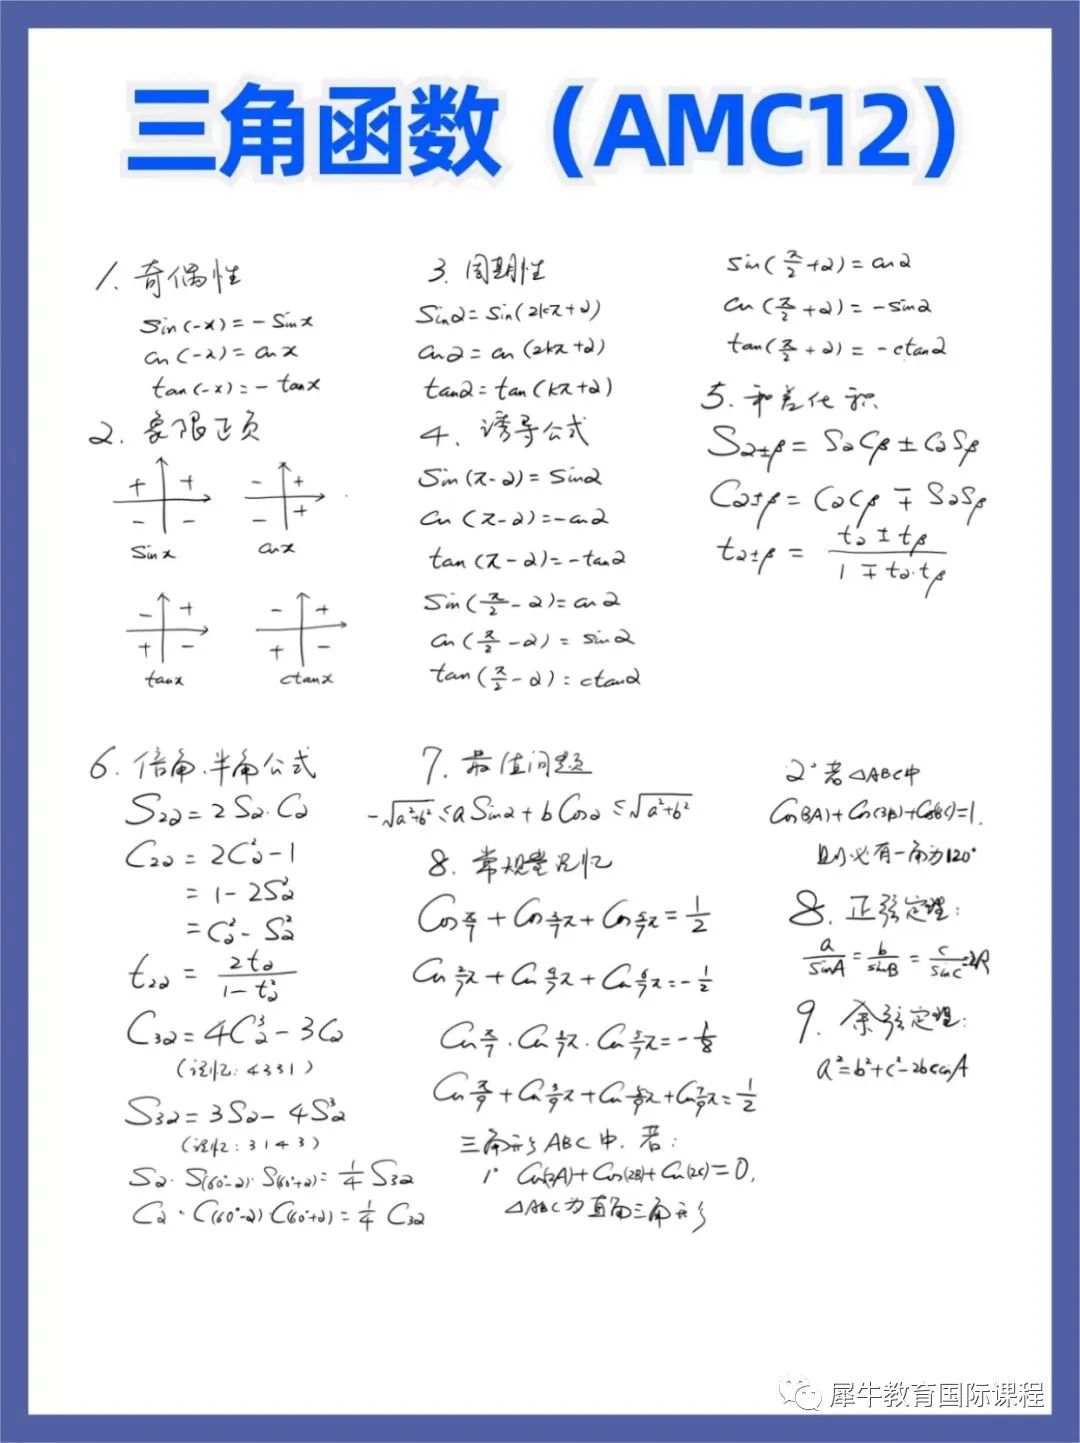 三角函数（AMC12）
1. 奇偶性
sin(-x)=-sinx
cos(-x)=cosx
tan(-x)=-tanx
2. 象限正负
+ +
- -
sinx
- +
- +
cosx
- +
+ -
tanx
- +
+ -
ctanx
3. 周期性
sinα=sin(2kπ+α)
cosα=cos(2kπ+α)
tanα=tan(kπ+α)
4. 诱导公式
sin(π-α)=sinα
cos(π-α)=-cosα
tan(π-α)=-tanα
sin(π/2-α)=cosα
cos(π/2-α)=sinα
tan(π/2-α)=ctanα
sin(π/2+α)=cosα
cos(π/2+α)=-sinα
tan(π/2+α)=-ctanα
5. 和差化积
Sα±β=SαCβ±CαSβ
Cα±β=CαCβ∓SαSβ
tα±β=(tα±tβ)/(1∓tα·tβ)
6. 倍角、半角公式
S2α=2Sα·Cα
C2α=2C²α-1
=1-2S²α
=C²α-S²α
t2α=2tα/(1-t²α)
C3α=4C³α-3Cα
(记忆:4331)
S3α=3Sα-4S³α
(记忆:3143)
Sα·S(60°-α)·S(60°+α)=1/4 S3α
Cα·C(60°-α)·C(60°+α)=1/4 C3α
7. 最值问题
-√(a²+b²)≤aSinα+bCosα≤√(a²+b²)
8. 常规量记忆
Cosπ/7+Cos3/7π+Cos5/7π=1/2
Cos2/7π+Cos4/7π+Cos6/7π=-1/2
Cosπ/7·Cos3/7π·Cos5/7π=-1/8
Cosπ/9+Cos3/9π+Cos5/9π+Cos7/9π=1/2
三角形ABC中,若:
1° Cos(2A)+Cos(2B)+Cos(2C)=0,
△ABC为直角三角形
2° 若△ABC中
Cos(3A)+Cos(3B)+Cos(3C)=1,
则必有一角为120°
8. 正弦定理:
a/sinA=b/sinB=c/sinC=2R
9. 余弦定理:
a²=b²+c²-2bccosA
犀牛教育国际课程